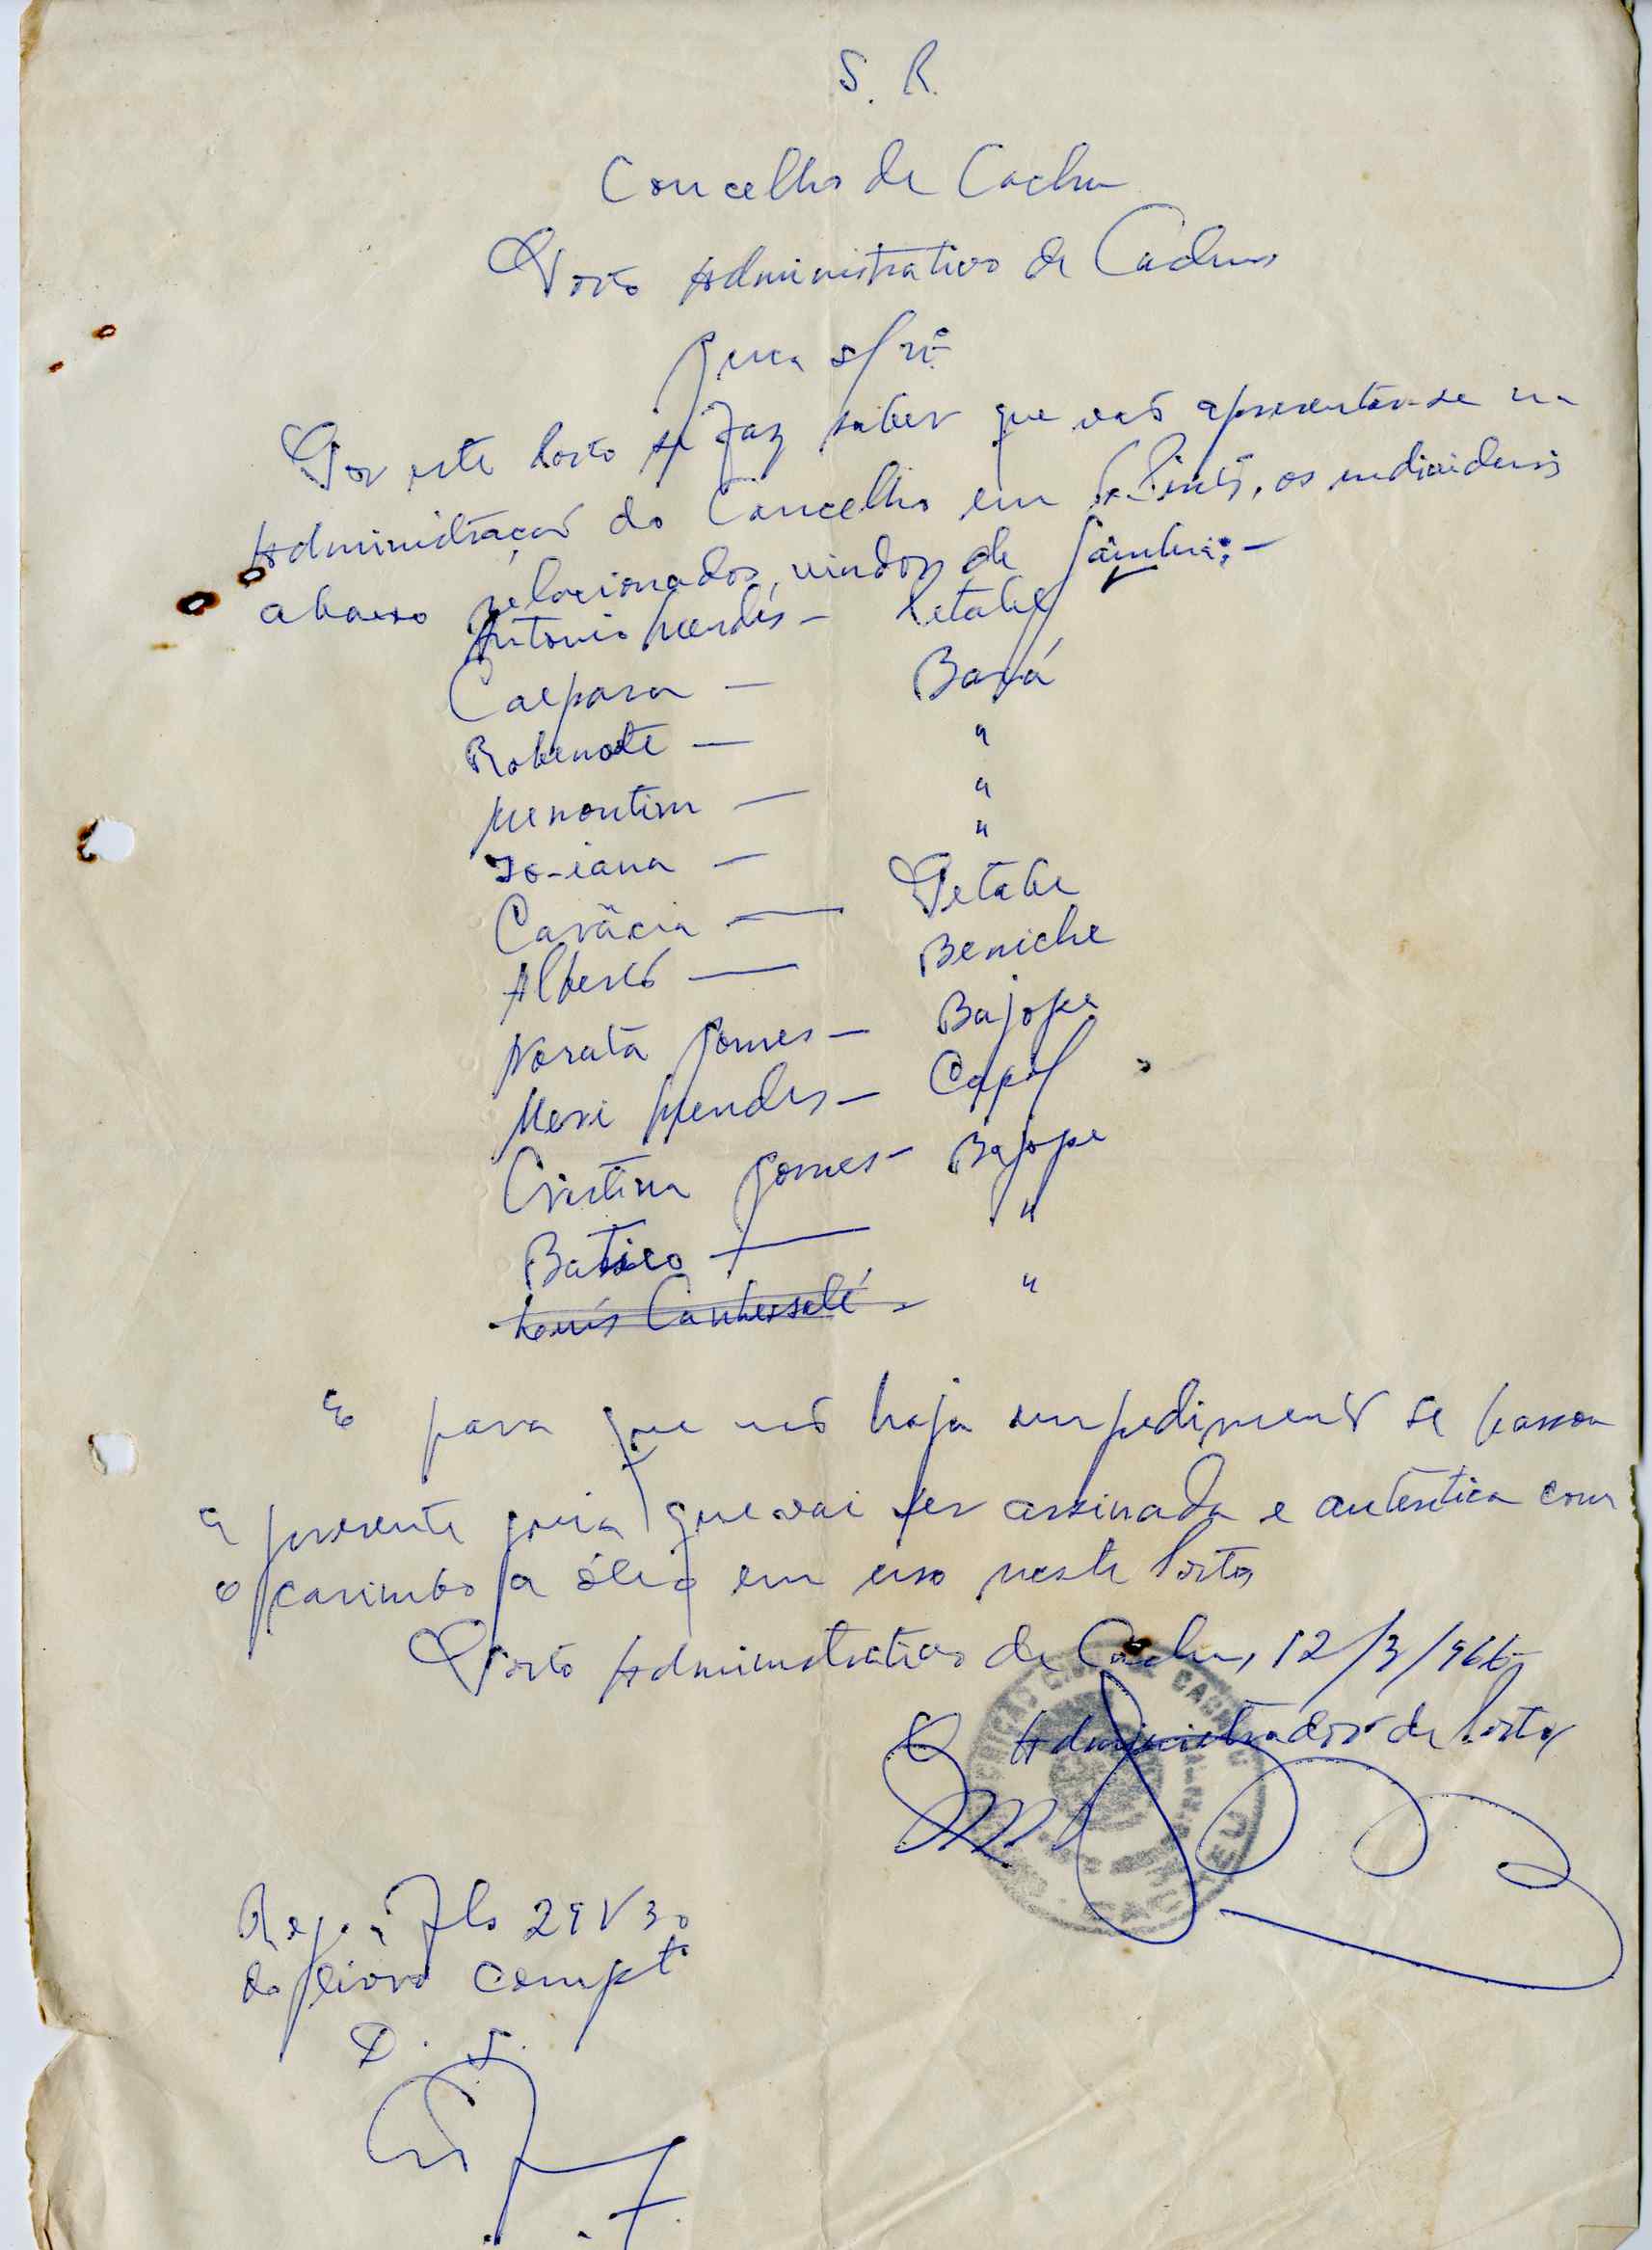 S. R.
Concelho de Cacheu
Posto Administrativo de Cacheu
Guia s/nº
Por este Posto se faz saber que vão apresentar-se na
Administração do Concelho em os individuos
abaixo relacionados, vindos de Gâmbia: —
Antonio Mendes — Petabe
Caepara — Bará
Robenate — "
Menontim — "
— "
— Petabe
Alberto — Beniche
Norata Gomes — Bajope
Meri Mendes — Capol
Cristina Gomes — Bajope
Batico — "
— "
E para que não haja impedimento se passou
a presente guia que vai ser assinada e autêntica com
o carimbo a óleo em uso neste Posto
Posto Administrativo de Cacheu, 12/3/966
O Administrador de Posto,
Reg. a fls 29 V 30
do livro compte
D. S.